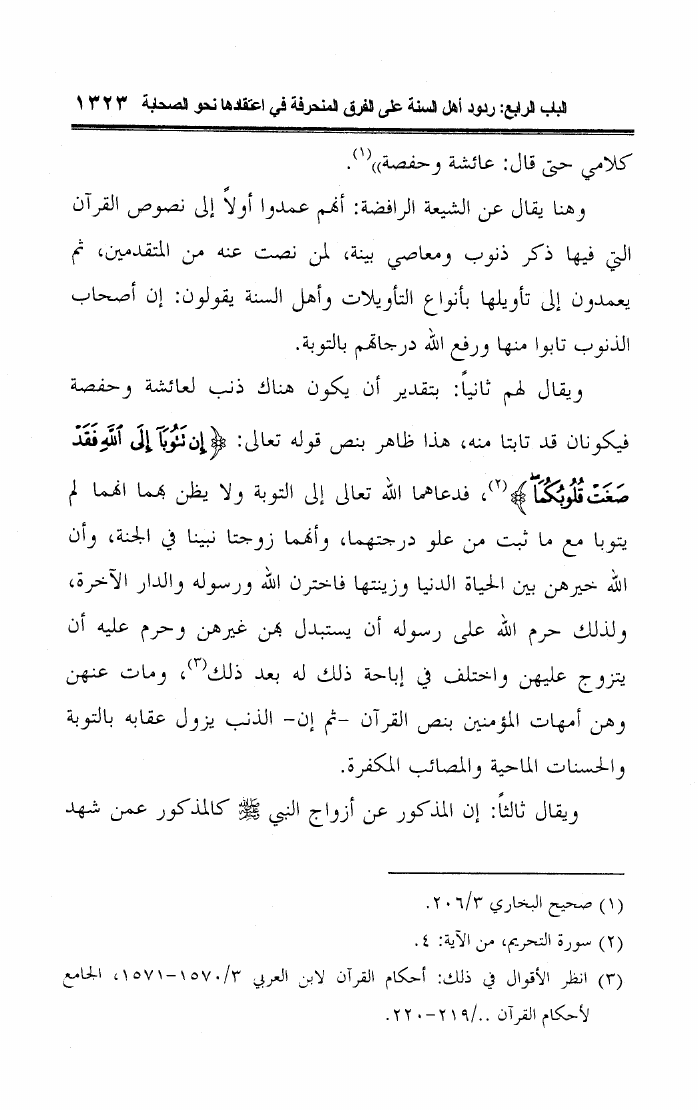 الباب الرابع: ردود أهل السنة على الفرق المنحرفة في اعتقادها نحو الصحابة ١٣٢٣
كلامي حتى قال: عائشة وحفصة))(١).
وهنا يقال عن الشيعة الرافضة: أنهم عمدوا أولاً إلى نصوص القرآن
التي فيها ذكر ذنوب ومعاصي بينة، لمن نصت عنه من المتقدمين، ثم
يعمدون إلى تأويلها بأنواع التأويلات وأهل السنة يقولون: إن أصحاب
الذنوب تابوا منها ورفع الله درجاتهم بالتوبة.
ويقال لهم ثانياً: بتقدير أن يكون هناك ذنب لعائشة وحفصة
فيكونان قد تابتا منه، هذا ظاهر بنص قوله تعالى: ﴿إِن تَتُوبَآ إِلَى ٱللَّهِ فَقَدْ
صَغَتْ قُلُوبُكُمَا ۖ﴾(٢)، فدعاهما الله تعالى إلى التوبة ولا يظن بهما انهما لم
يتوبا مع ما ثبت من علو درجتهما، وأنهما زوجتا نبينا في الجنة، وأن
الله خيرهن بين الحياة الدنيا وزينتها فاخترن الله ورسوله والدار الآخرة،
ولذلك حرم الله على رسوله أن يستبدل بهن غيرهن وحرم عليه أن
يتزوج عليهن واختلف في إباحة ذلك له بعد ذلك(٣)، ومات عنهن
وهن أمهات المؤمنين بنص القرآن -ثم إن- الذنب يزول عقابه بالتوبة
والحسنات الماحية والمصائب المكفرة.
ويقال ثالثاً: إن المذكور عن أزواج النبي ﷺ كالمذكور عمن شهد
(١) صحيح البخاري ٢٠٦/٣.
(٢) سورة التحريم، من الآية: ٤.
(٣) انظر الأقوال في ذلك: أحكام القرآن لابن العربي ١٥٧٠/٣-١٥٧١، الجامع
لأحكام القرآن ../٢١٩-٢٢٠.